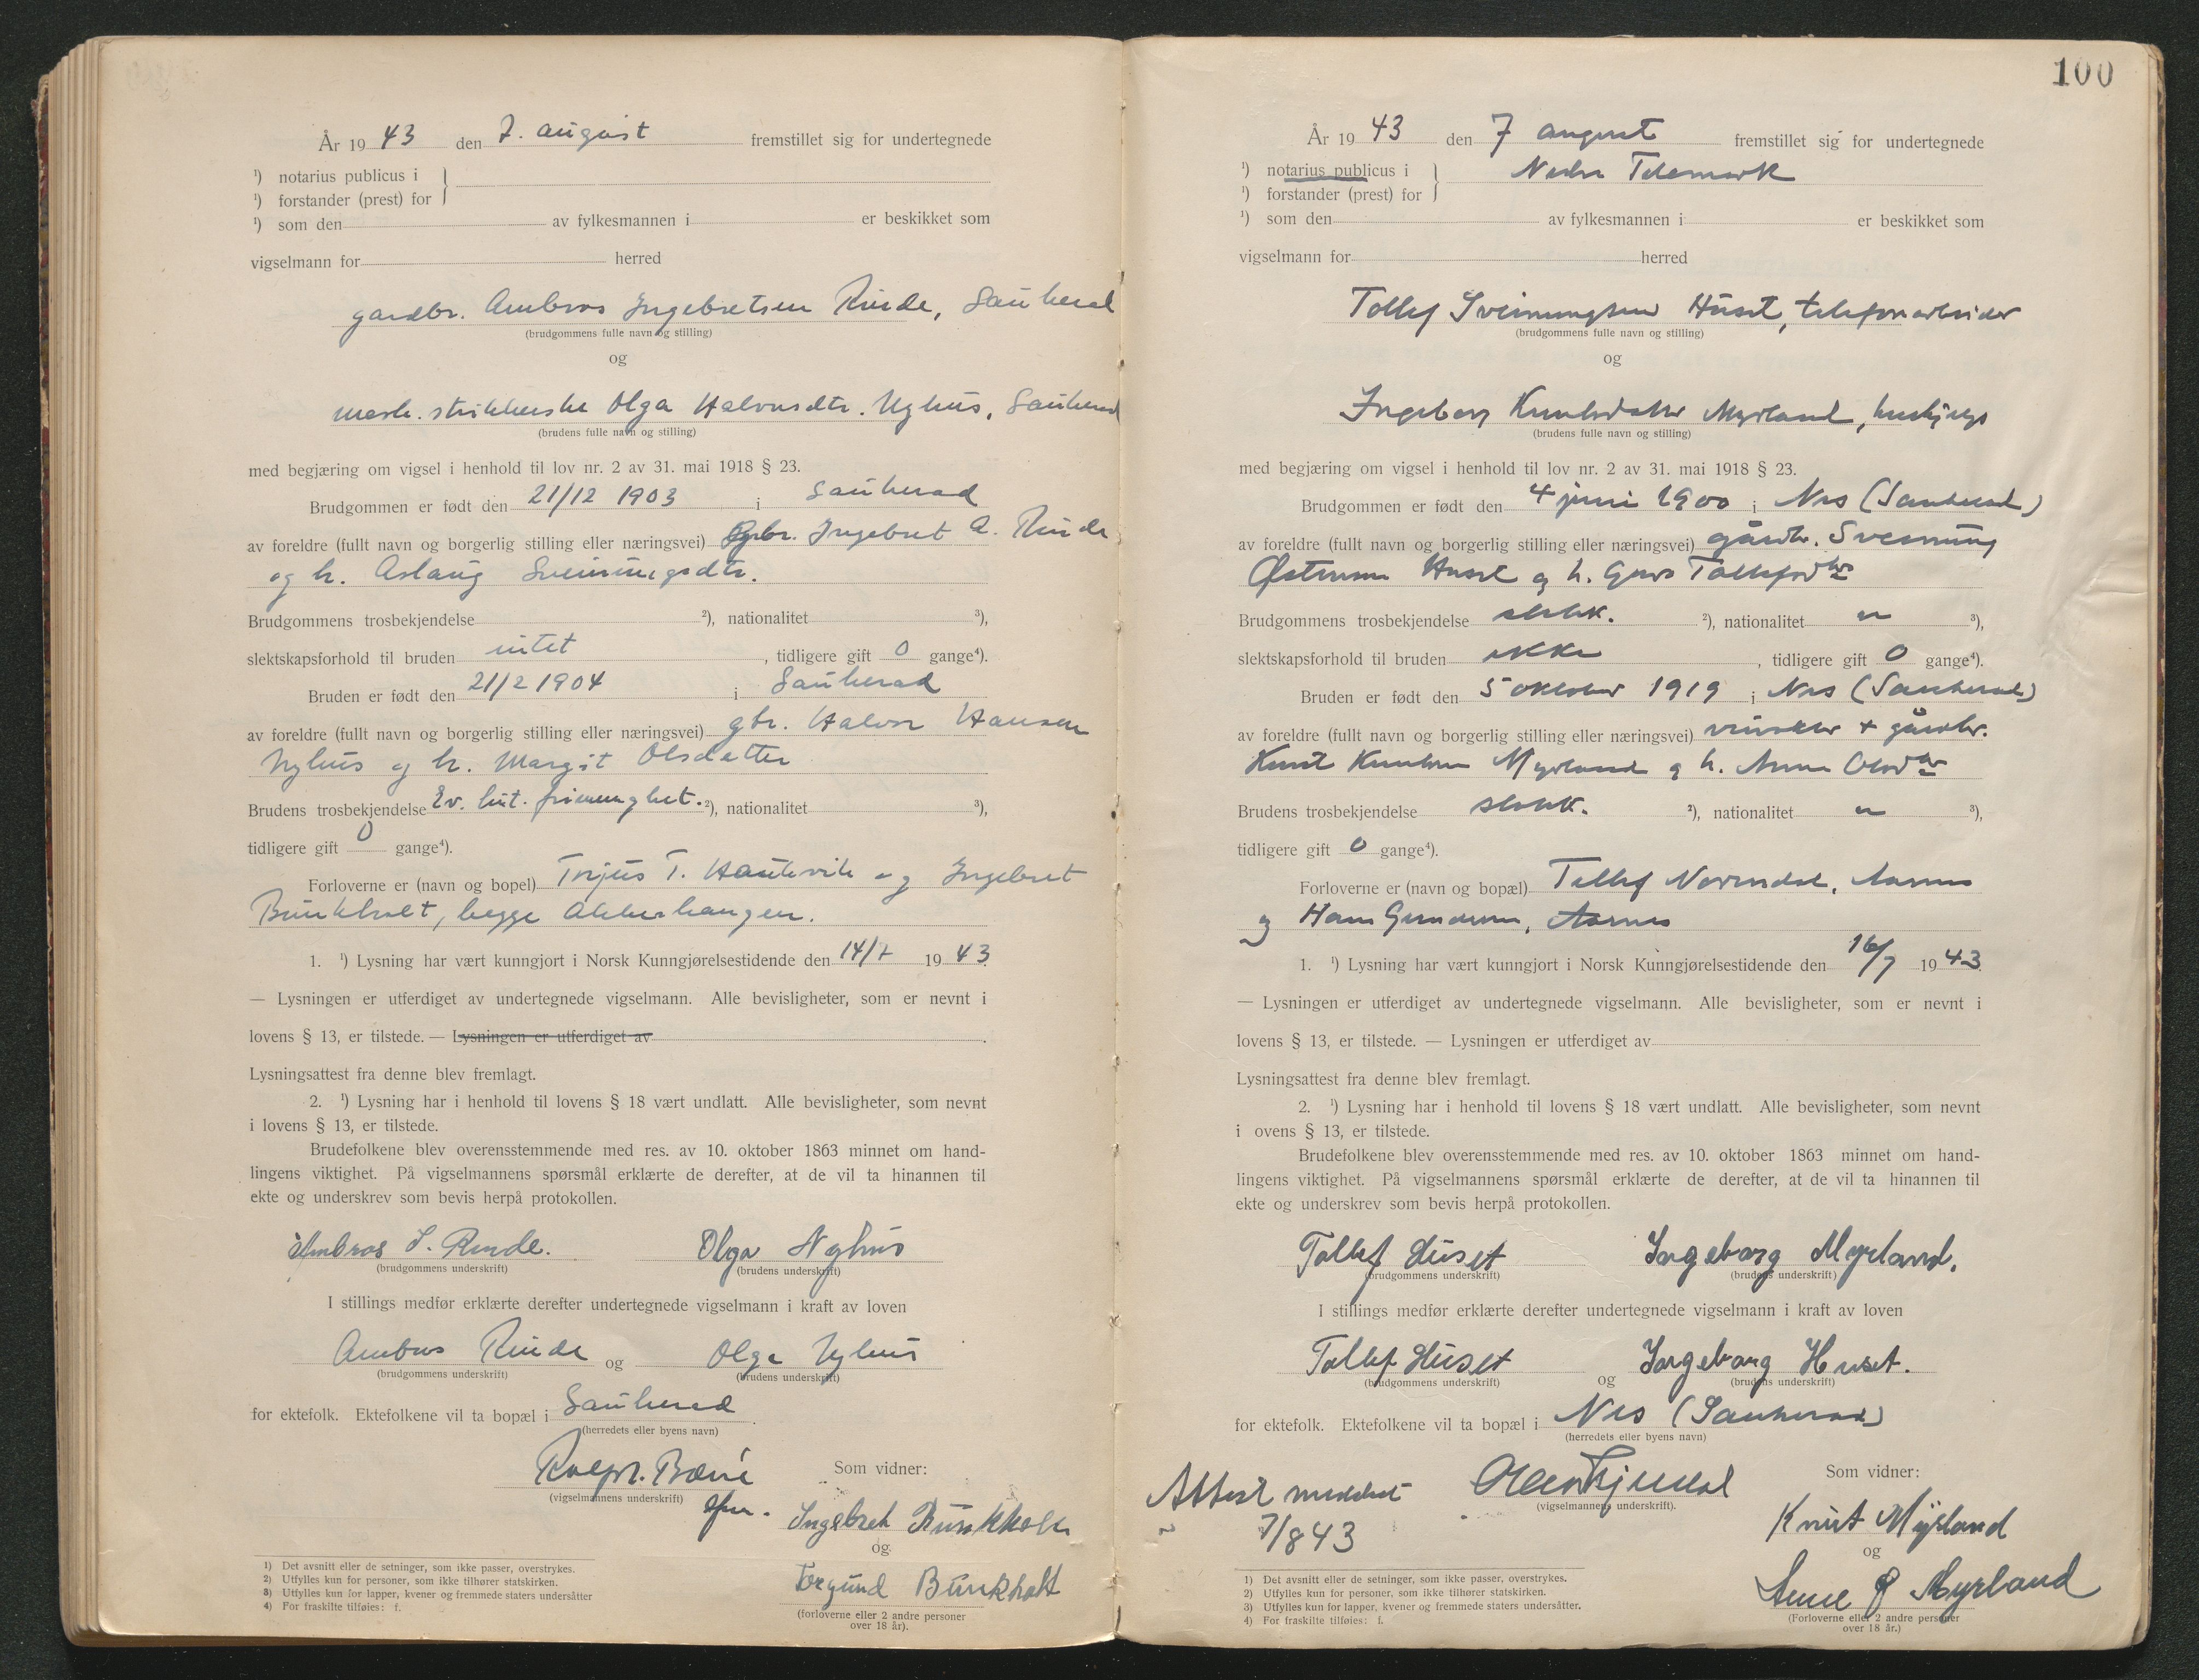 År 19 43 den 7. august fremstillet sig for undertegnede
¹) notarius publicus i
¹) forstander (prest) for
¹) som den av fylkesmannen i er beskikket som
vigselmann for herred
gardbr. Ambros Ingebretsen Rinde, Sauherad
(brudgommens fulle navn og stilling)
og
mask. strikkerske Olga Halvorsdtr. Nyhus, Sauherad
(brudens fulle navn og stilling)
med begjæring om vigsel i henhold til lov nr. 2 av 31. mai 1918 § 23.
Brudgommen er født den 21/12 1903 i Sauherad
av foreldre (fullt navn og borgerlig stilling eller næringsvei) gbr. Ingebret A. Rinde
og h. Aslaug Sveinungsdtr.
Brudgommens trosbekjendelse ²), nationalitet ³),
slektskapsforhold til bruden intet , tidligere gift 0 gange⁴).
Bruden er født den 21/2 1904 i Sauherad
av foreldre (fullt navn og borgerlig stilling eller næringsvei) gbr. Halvor Hansen
Nyhus og h. Margit Olsdatter
Brudens trosbekjendelse Ev. lut. frimenghet. ²), nationalitet ³),
tidligere gift 0 gange⁴).
Forloverne er (navn og bopel) Torjus T. Haukvik og Ingebret
Bunkholt, begge Akkerhaugen.
1. ¹) Lysning har vært kunngjort i Norsk Kunngjørelsestidende den 14/7 19 43.
— Lysningen er utferdiget av undertegnede vigselmann. Alle bevisligheter, som er nevnt i
lovens § 13, er tilstede. — Lysningen er utferdiget av .
Lysningsattest fra denne blev fremlagt.
2. ¹) Lysning har i henhold til lovens § 18 vært undlatt. Alle bevisligheter, som nevnt
i lovens § 13, er tilstede.
Brudefolkene blev overensstemmende med res. av 10. oktober 1863 minnet om hand-
lingens viktighet. På vigselmannens spørsmål erklærte de derefter, at de vil ta hinannen til
ekte og underskrev som bevis herpå protokollen.
Ambros I. Rinde. Olga Nyhus
(brudgommens underskrift) (brudens underskrift)
I stillings medfør erklærte derefter undertegnede vigselmann i kraft av loven
Ambros Rinde og Olga Nyhus
(brudgommens underskrift) (brudens underskrift)
for ektefolk. Ektefolkene vil ta bopæl i Sauherad .
(herredets eller byens navn)
Som vidner:
(vigselmannens underskrift)
Ingebret Bunkholt
og
Torgund Bunkholt
(forloverne eller 2 andre personer
over 18 år).
1) Det avsnitt eller de setninger, som ikke passer, overstrykes.
2) Utfylles kun for personer, som ikke tilhører statskirken.
3) Utfylles kun for lapper, kvener og fremmede staters undersåtter
4) For fraskilte tilføies: f.
100
År 19 43 den 7 august fremstillet sig for undertegnede
¹) notarius publicus i Nedre Telemark
¹) forstander (prest) for
¹) som den av fylkesmannen i er beskikket som
vigselmann for herred
Tollef Sveinungsen Huset, telefonarbeider
(brudgommens fulle navn og stilling)
og
Ingeborg Knutsdatter Myrland, hushjelp
(brudens fulle navn og stilling)
med begjæring om vigsel i henhold til lov nr. 2 av 31. mai 1918 § 23.
Brudgommen er født den 4 juni 1900 i Nes (Sauherad)
av foreldre (fullt navn og borgerlig stilling eller næringsvei) gårdbr. Sveinung
Østensen Huset og h. Tollefsdtr
Brudgommens trosbekjendelse statsk. ²), nationalitet n ³),
slektskapsforhold til bruden ikke , tidligere gift 0 gange⁴).
Bruden er født den 5 oktober 1919 i Nes (Sauherad)
av foreldre (fullt navn og borgerlig stilling eller næringsvei) + gårdbr.
Knut Knutsen Myrland og h. Anne Olsdtr
Brudens trosbekjendelse statsk. ²), nationalitet n ³),
tidligere gift 0 gange⁴).
Forloverne er (navn og bopæl) Tollef Aarnes
og Hans Gundersen, Aarnes
1. ¹) Lysning har vært kunngjort i Norsk Kunngjørelsestidende den 16/7 19 43.
— Lysningen er utferdiget av undertegnede vigselmann. Alle bevisligheter, som er nevnt i
lovens § 13, er tilstede. — Lysningen er utferdiget av
Lysningsattest fra denne blev fremlagt.
2. ¹) Lysning har i henhold til lovens § 18 vært undlatt. Alle bevisligheter, som nevnt
i ovens § 13, er tilstede.
Brudefolkene blev overensstemmende med res. av 10. oktober 1863 minnet om hand-
lingens viktighet. På vigselmannens spørsmål erklærte de derefter, at de vil ta hinannen til
ekte og underskrev som bevis herpå protokollen.
Tollef Huset Ingeborg Myrland.
(brudgommens underskrift) (brudens underskrift)
I stillings medfør erklærte derefter undertegnede vigselmann i kraft av loven
Tollef Huset og Ingeborg Huset.
(brudgommens underskrift) (brudens underskrift)
for ektefolk. Ektefolkene vil ta bopæl i Nes (Sauherad)
(herredets eller byens navn)
Attest meddelt
7/8 43
(vigselmannens underskrift).
Som vidner:
Knut Myrland
og
Anne O Myrland
(Forloverne eller 2 andre personer
over 18 år.)
1) Det avsnitt eller de setninger, som ikke passer, overstrykes.
2) Utfylles kun for personer, som ikke tilhører statskirken.
3) Utfylles kun for lapper, kvener og fremmede staters undersåtter.
4) For fraskilte tilføies: f.